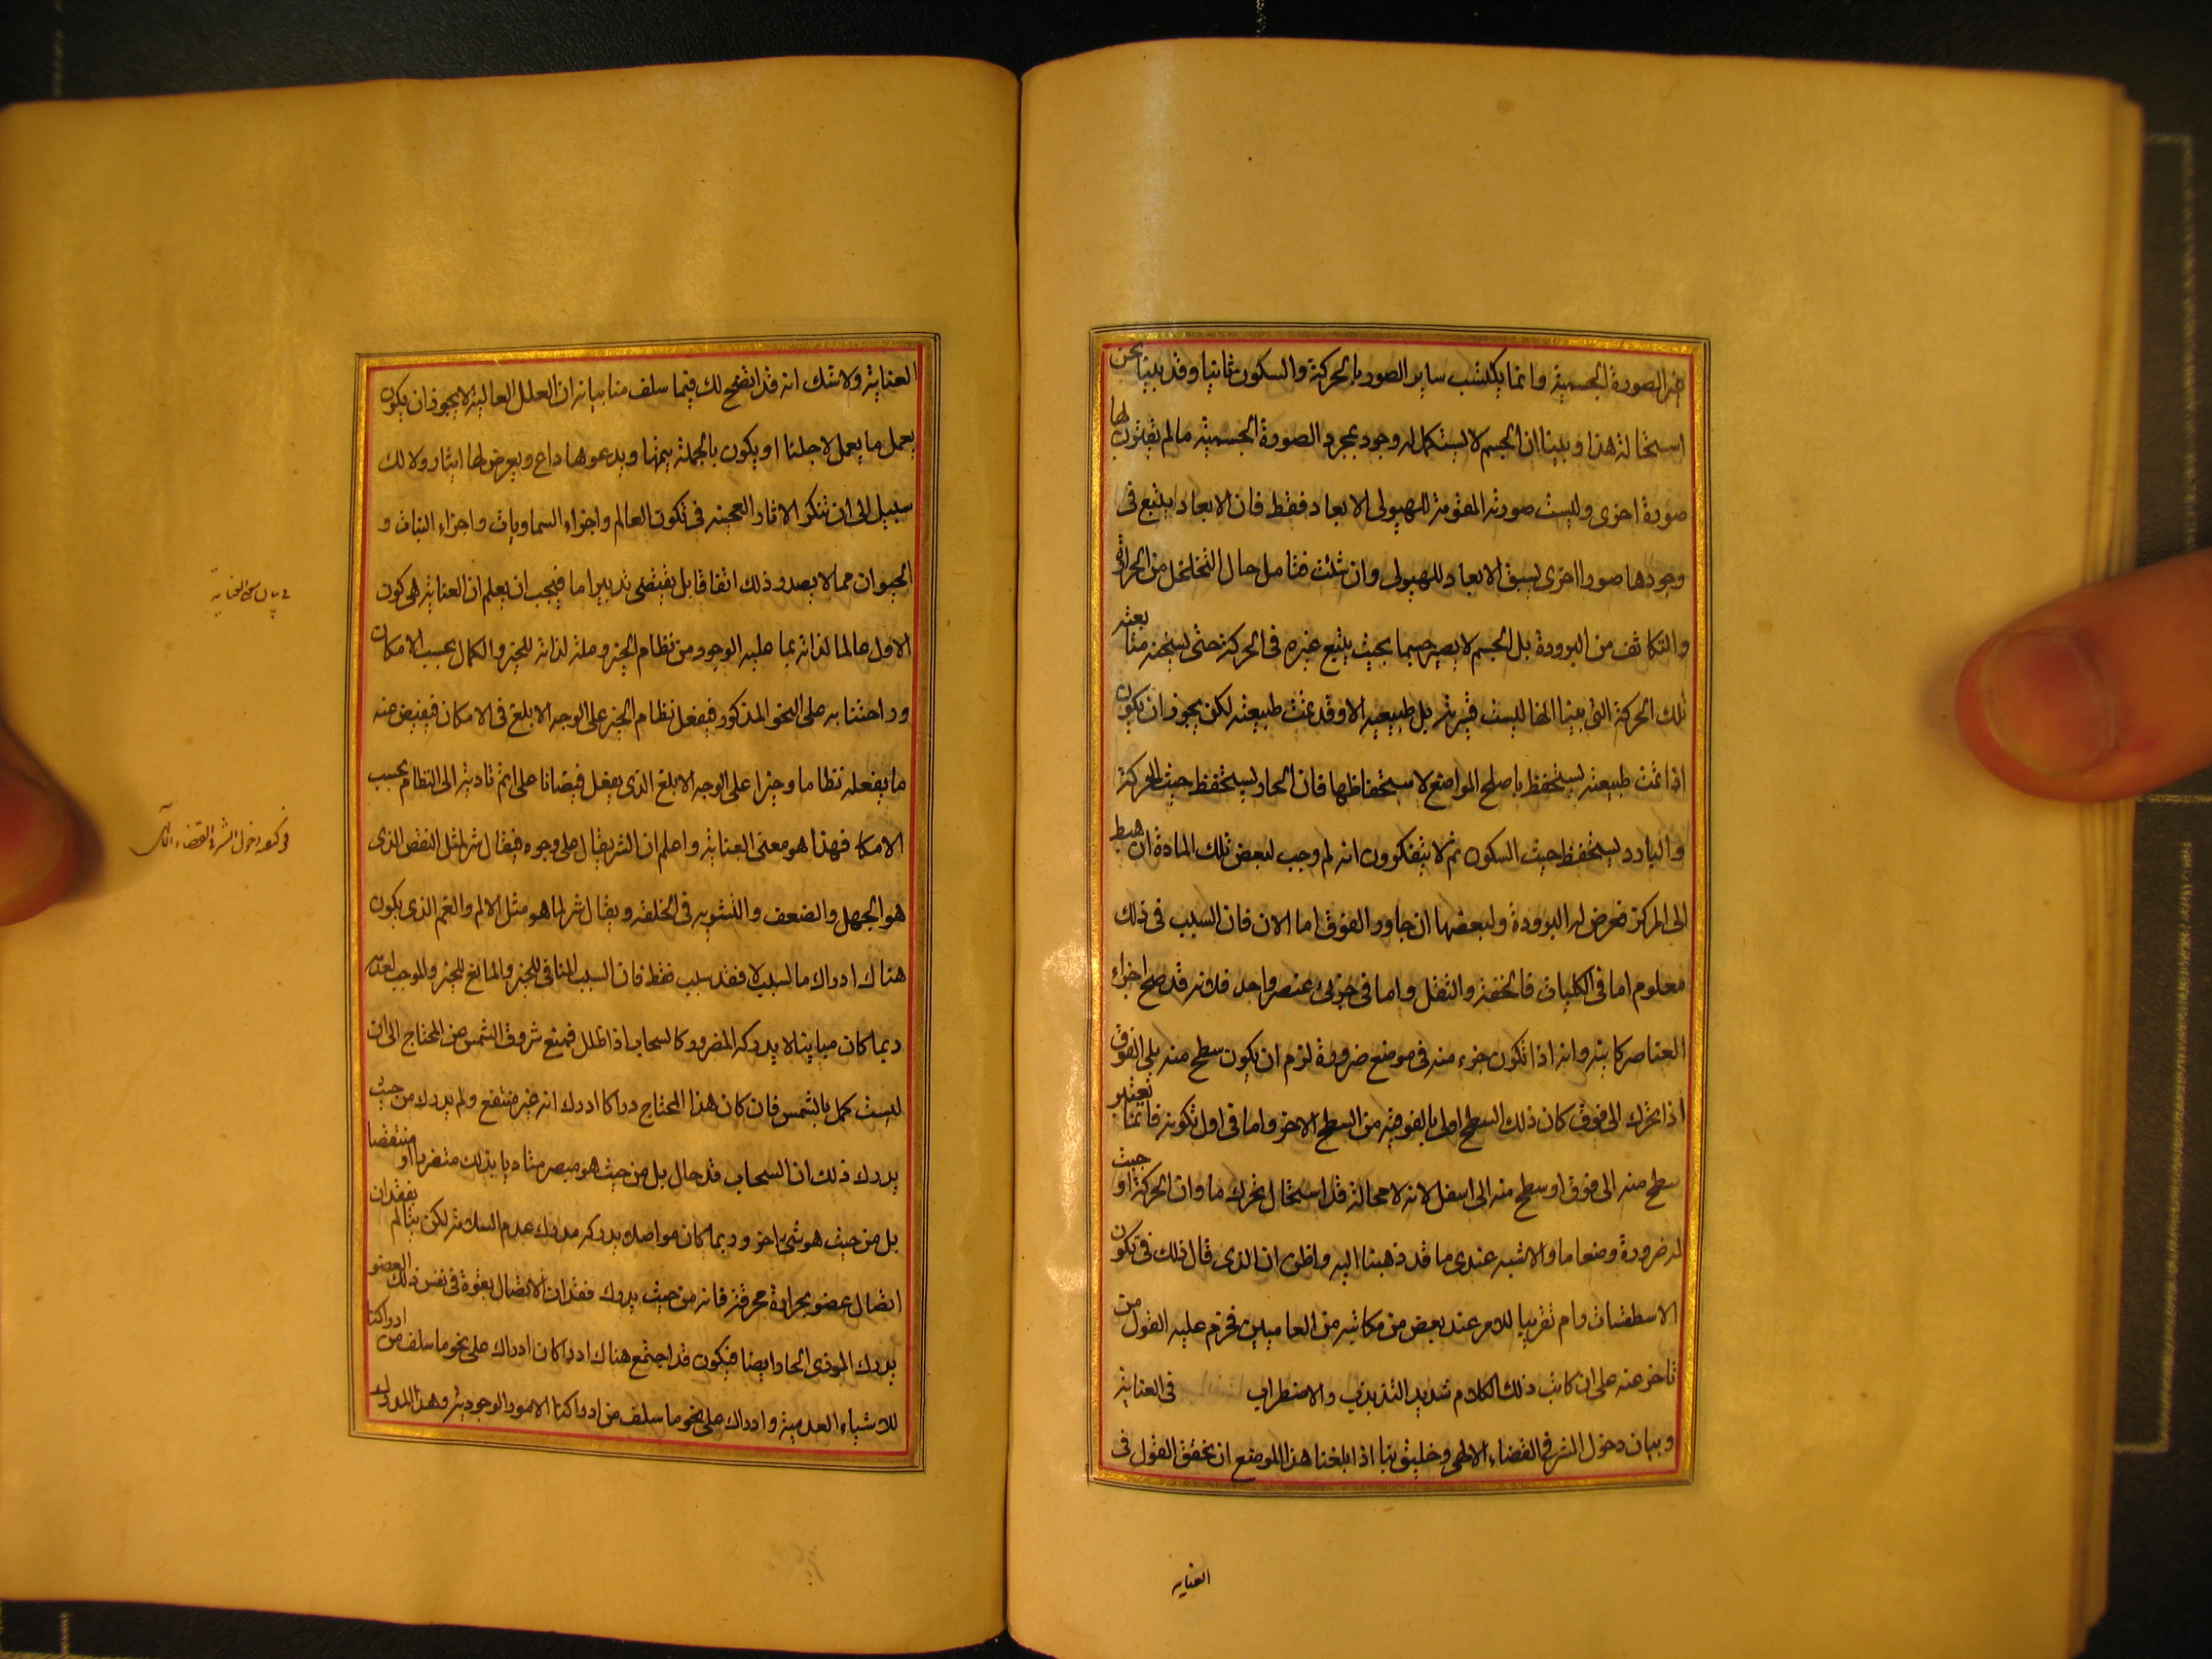 غير الصورة الجسمية وانما يكتسب ساير الصور بالحركة والسكون ثانيا وقد بينا نحن
استحالة هذا وبينا ان الجسم لا يستكمل له وجود بمجرد الصورة الجسمية ما لم يقترن بها
صورة اخرى وليست صورته المقومة للهيولى الابعاد فقط فان الابعاد يتبع في
وجودها صورا اخرى يسبق الابعاد للهيولى وان شئت فتامل حال التخلخل من الحرارة
والتكاثف من البرودة بل الجسم لا يصير جسما بحيث يتبع غيره في الحركة حتى يسخنه متابعته
تلك الحركة التي بينا انها ليست قسرية بل طبيعية الا وقد تمت طبيعته لكن يجوز ان يكون
اذا تمت طبيعته يستحفظ باصلح المواضع لاستحفاظها فان الحار يستحفظ حيث الحركة
والبارد يستحفظ حيث السكون ثم لا يتفكرون انه لم وجب لبعض تلك المادة ان هبط
الى المركز فعرض له البرودة ولبعضها ان جاور الفوق اما الان فان السبب في ذلك
معلوم اما في الكليات فالخفة والثقل واما في جزئي عنصر واحد فلانه قد صح اجزاء
العناصر كاينة وانه اذا تكون جزء منه في موضع ضرورة لزم ان يكون سطح منه يلي الفوق
اذا تحرك الى فوق كان ذلك السطح اولى بالفوقية من السطح الاخر واما في اول تكونه فانما يعتبر
سطح منه الى فوق او سطح منه الى اسفل لانه لا محالة قد استحال بحركة ما وان الحركة او جبت
له ضرورة وضعا ما والاشبه عندي ما قد ذهبنا اليه واظن ان الذي قال ذلك في تكون
الاسطقسات رام تقريبا للامر عند بعض من كاتبه من العاميين فجزم عليه القول من
تاخر عنه على ان كاتب ذلك الكلام شديد التذبذب والاضطراب في العناية
وبيان دخول الشر في القضاء الالهي وخليق بنا اذا بلغنا هذا الموضع ان نحقق القول في
العنايه
العناية ولا شك انه قد اتضح لك فيما سلف منا بيانه ان العلل العالية لا يجوز ان يكون
يعمل ما يعمل لاجلنا او يكون بالجملة يهمها ويدعوها داع ويعرض لها ايثار ولا لك
سبيل الى ان تنكر الاثار العجيبة في تكون العالم واجزاء السماويات واجزاء النبات و
الحيوان مما لا يصدر ذلك اتفاقا بل يقتضي تدبيرا ما فيجب ان يعلم ان العناية هي كون
الاول عالما لذاته بما عليه الوجود من نظام الخير وعلة لذاته للخير والكمال بحسب الامكان
وراضيا به على النحو المذكور فيعقل نظام الخير على الوجه الابلغ في الامكان فيفيض عنه
ما يعقله نظاما وخيرا على الوجه الابلغ الذي يعقل فيضانا على اتم تادية الى النظام بحسب
الامكا فهذا هو معنى العناية واعلم ان الشر يقال على وجوه فيقال شر لمثل النقص الذي
هو الجهل والضعف والتشويه في الخلقة ويقال شر لما هو مثل الالم والغم الذي يكون
هناك ادراك ما لسبب لا فقد سبب فقط فان السبب المنافي للخير والمانع للخير والموجب لعدمه
ربما كان مباينا لا يدركه المضرور كالسحاب اذا ظلل فمنع شروق الشمس عن المحتاج الى ان
يستكمل بالشمس فان كان هذا المحتاج دراكا ادرك انه غير منتفع ولم يدرك من حيث
يدرك ذلك ان السحاب قد حال بل من حيث هو مبصر متاديا بذلك متضررا او منتقصا
بل من حيث هو شيء اخر وربما كان مواصلا يدركه مدرك عدم السلامة لكن يتالم بفقدان
اتصال عضو بحرارة محرقة فانه من حيث يدرك فقدان الاتصال بقوة في نفس ذلك العضو
يدرك الموذي الحار ايضا فيكون قد اجتمع هناك ادراكان ادراك على نحو ما سلف من ادراكنا
للاشياء العدمية وادراك على نحو ما سلف من ادراكنا الامور الوجودية وهذا المدرك
في بيان معنى العناية
في كيفية دخول الشر في القضاء الالهي